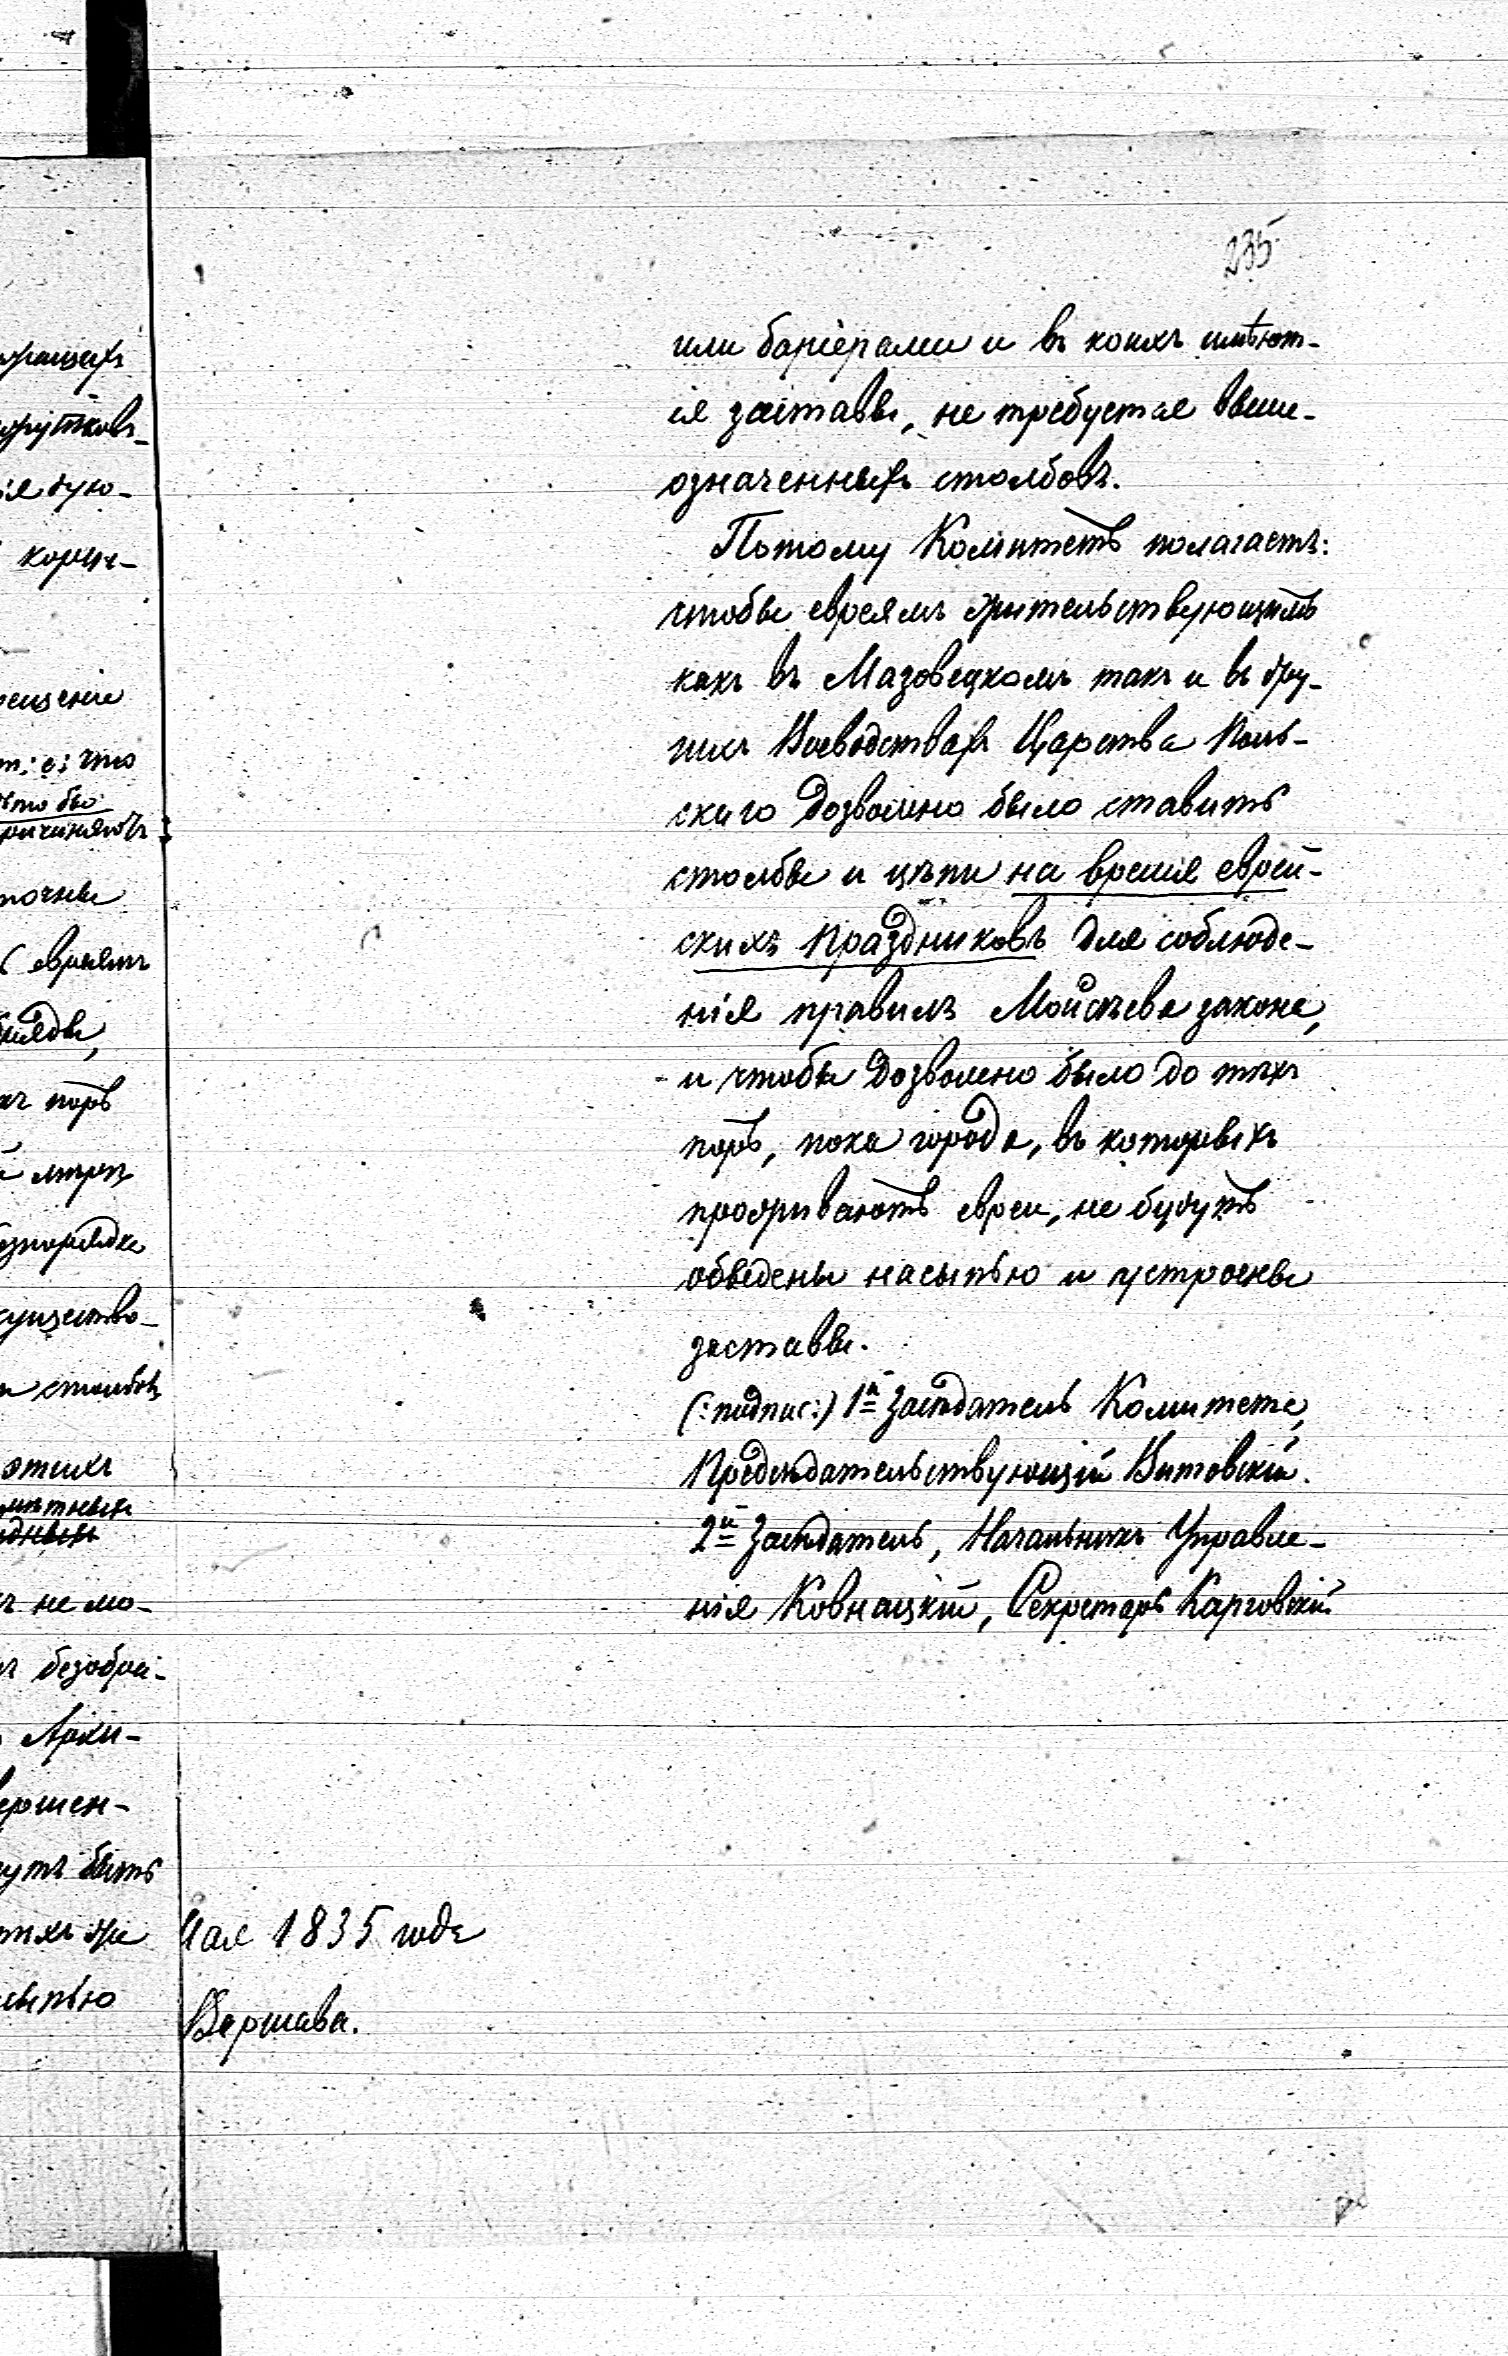 235
или барiерами и въ коихъ имѣют-
ся заставы, не требуется выше-
означенныхъ столбовъ.
Потому Комитетъ полагаетъ:
чтобы евреямъ жительствующимъ
какъ въ Мазовецкомъ такъ и въ дру-
гихъ Воеводствахъ Царства Поль-
скаго дозволено было ставить
столбы и цѣпи на время еврей-
скихъ праздниковъ для соблюде-
нія правилъ Мойсѣева закона,
и чтобы дозволено было до тѣхъ
поръ, пока города, въ которыхъ
проживаютъ евреи, не будутъ
обведены насыпью и устроены
заставы.
(:подпис:) 1й Засѣдатель Комитета,
Предсѣдательствующій Витовскій.
2й Засѣдатель, Начальникъ Управле-
нія Ковнацкій, Секретарь Карговскій
Мая 1835 года
Варшава.
рещеніе
т: е: что
точны
евреямъ
хъ поръ
столбов
этихъ
ъ не мо-
ъ безобра-
Архи-
вершен-
гутъ быть
сыпью